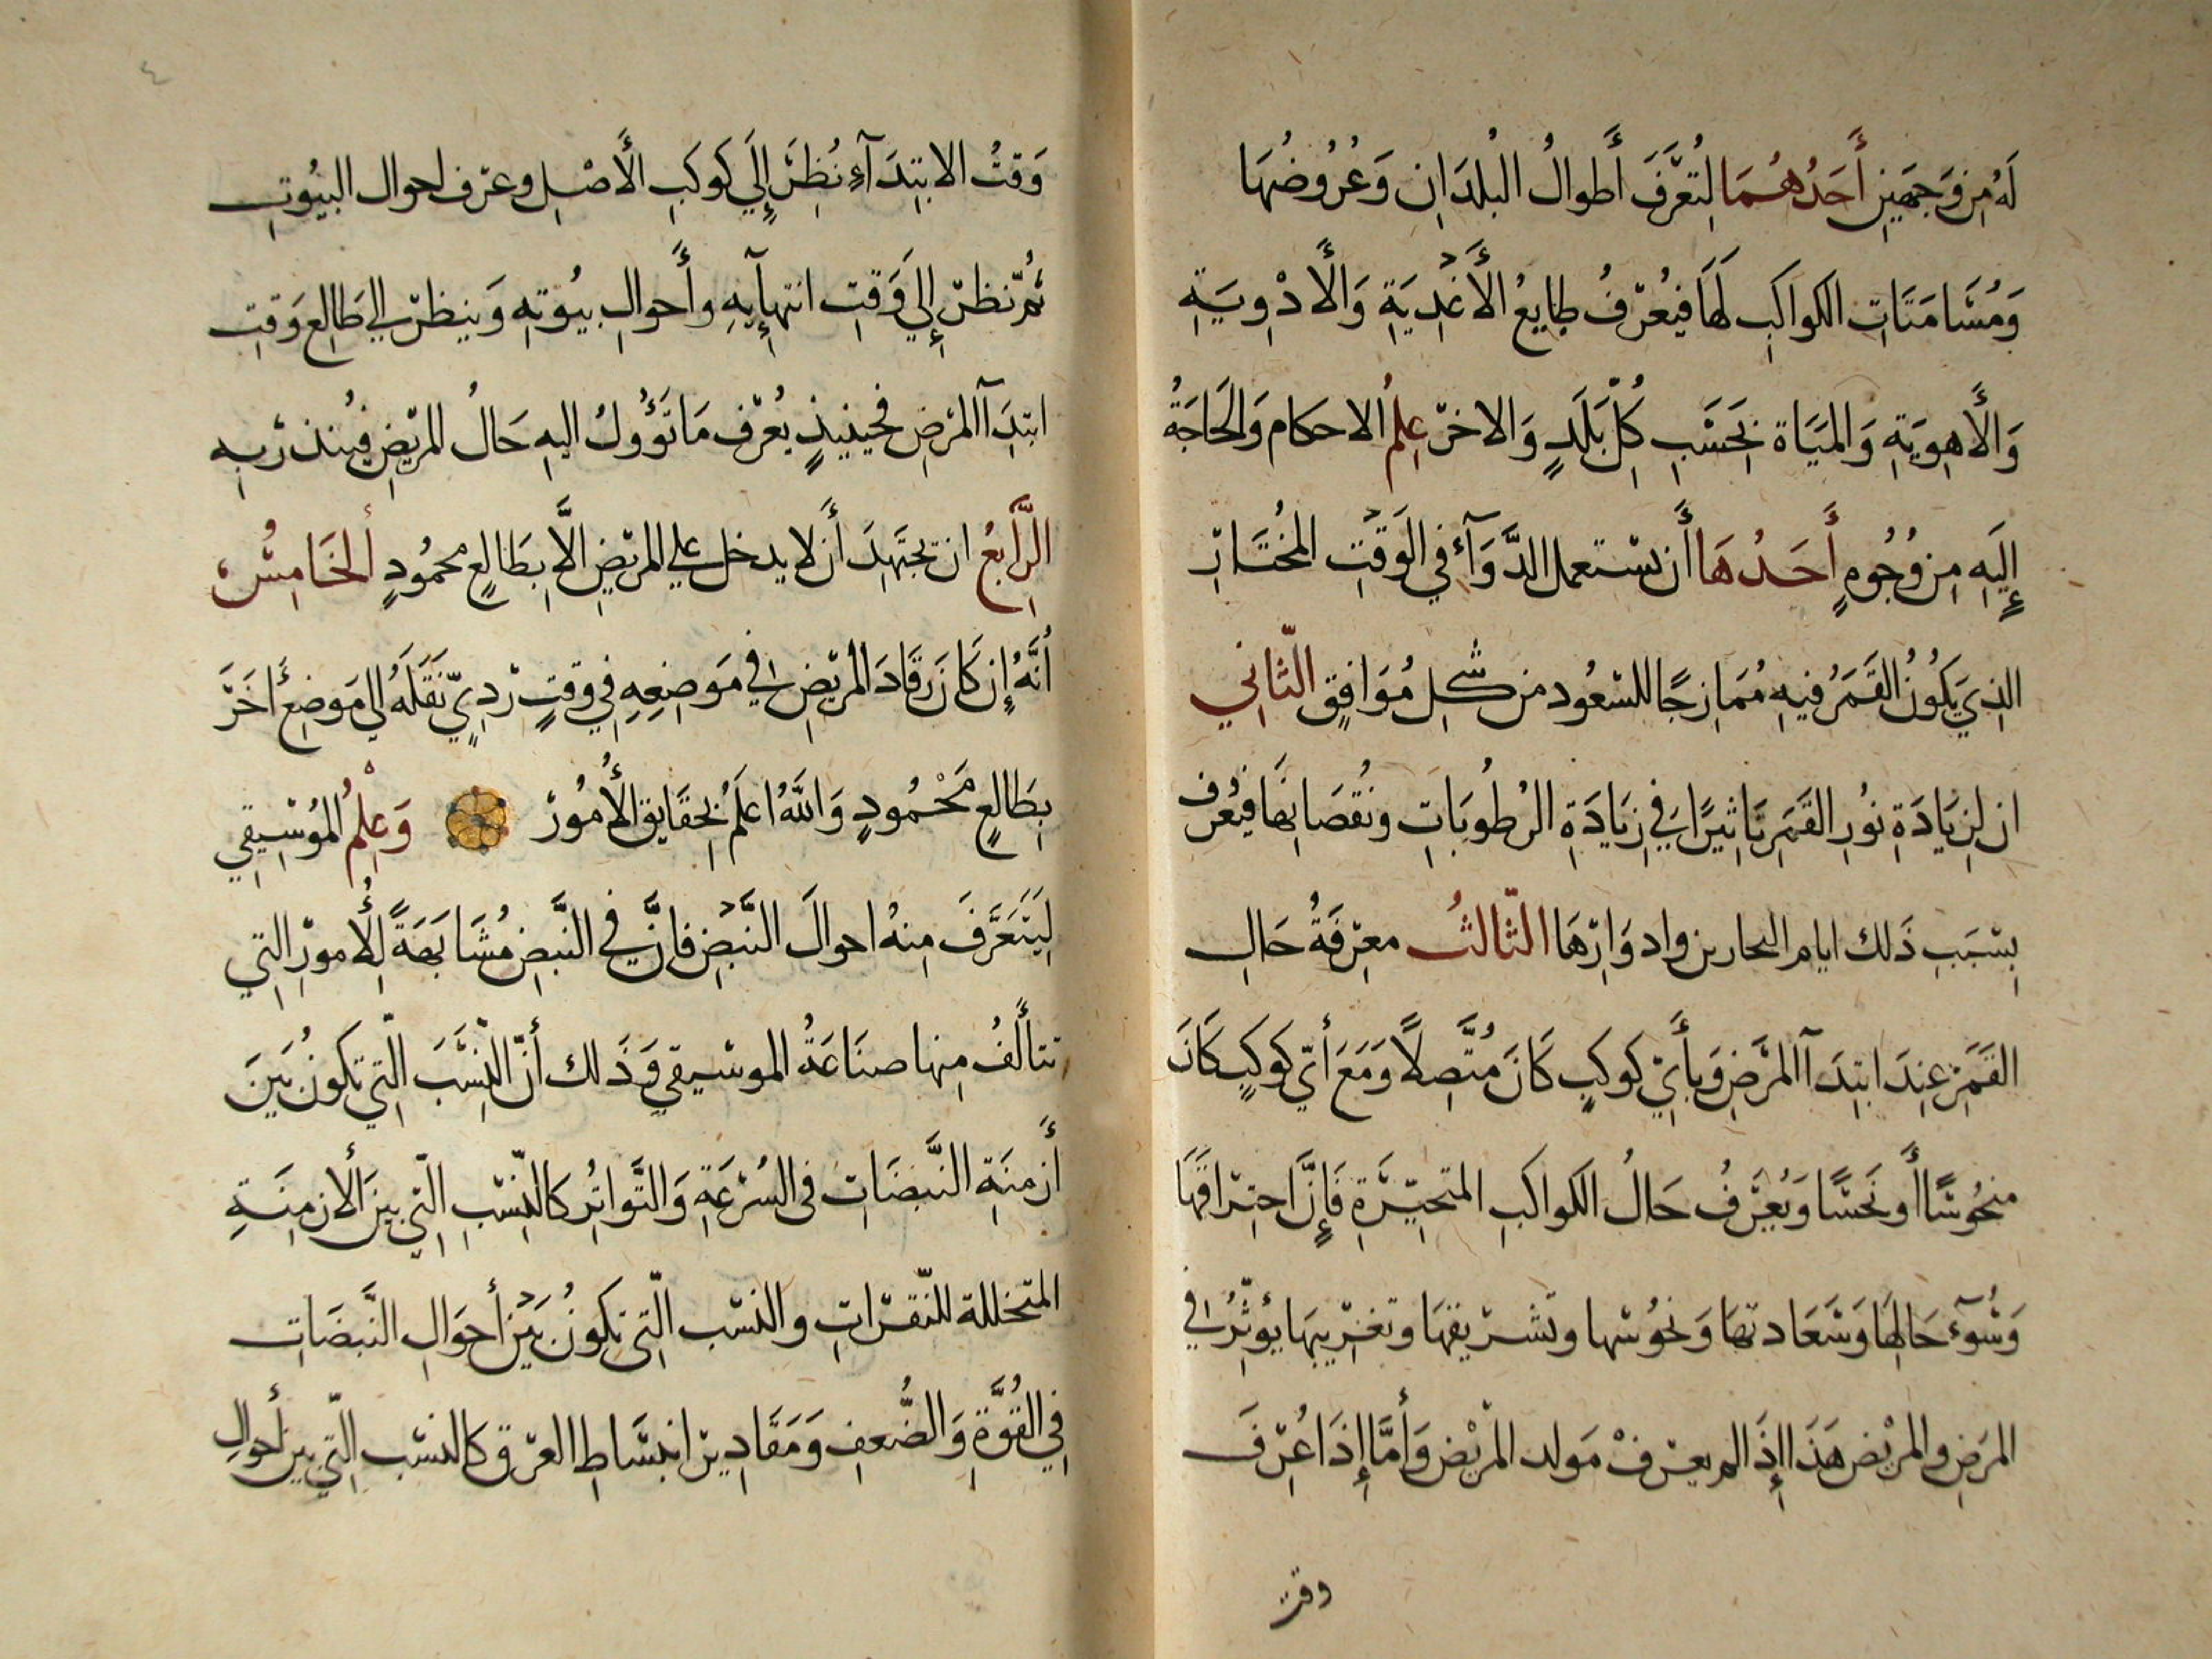 لَهُ مِن وَجهَينِ أَحَدُهُمَا لِتُعَرَّفَ أَطوالُ البُلدَانِ وَعُرُوضُهَا
وَمُسَامَتَاتِ الكواكِبِ لَهَا فيُعَرفُ طبايعُ الأَغذِيَةِ وَالأَدْوِيَةِ
وَالأَهوِيَةِ وَالمِيَاة بِحَسَبِ كُلِّ بَلَدٍ وَالاخر عِلمُ الاحكام وَالحَاجَةُ
إِلَيهِ مِن وُجُوهٍ أَحَدُهَا أَن يستعمل الدَّوَآءُ في الوَقتِ المُختَارِ
الذِي يَكُونُ القَمَرُ فيهِ مُمَازِجًا للسعُود من شكلٍ مُوَافِقٍ الثّانِي
ان لِزِيَادَةِ نُورِ القَمَرِ تَاثِيرًا في زِيَادَةِ الرُطُوبَاتِ ونُقصَانِهَا فيُعرف
بِسَبَبِ ذَلك ايام البحارين وادوَارِهَا الثّالثُ معرِفَةُ حَالِ
القَمَرِ عِندَ ابتِدَآ المَرَضِ وَبأَيِّ كوكبٍ كَانَ مُتَّصِلاً وَمَعَ أيّ كوكبٍ كَانَ
منحُوسًا أَو نَحسًا وَيُعرَفُ حَالُ الكواكبِ المتحيّرَةِ فَإِنَّ احتِرَاقَهَا
وَسُوٓءَ حَالِهَا وَسَعَادتهَا وَنحُوسها وتشريقهَا وتغرِيبهَا يؤثِرُ في
المرَضِ والمرِيض هَذَا إِذَا لم يعرف مَولد المرِيْض وَأمَّا إِذَا عُرِفَ
وقت
٤
وَقتُ الابتِدَآءِ نُظِرَ إِلَى كوكبِ الأَصْلِ وعرّف احوال البيُوتِ
ثُمّ نظرَ إِلَى وَقتِ انتهآيِهِ وأَحوالِ بيُوتهِ وَينظر الي طَالِعِ وَقتِ
ابتِدَآ المرَضِ فحينيذٍ يُعرف مَا تَؤُولُ اليهِ حَالُ المرِيضِ فيُنذرُ بهِ
الرَّابعُ ان تجتَهِدَ أَن لا يدخل علي المريضِ الَّا بِطَالِعٍ محمُودٍ الخَامِسُ
أَنَّهُ إِن كَانَ رقَادَ المرِيضِ في مَوضِعِهِ في وقتٍ ردِيٍّ نَقَلَهُ الي مَوضِعٍ أخَرَ
بِطَالعٍ مَحْمُودٍ وَاللّهُ اعلَمُ بحِقَايِقِ الأُمُورْ وَعِلمُ المُوْسِيقِي
لِيَتَعَرَّفَ مِنهُ احوالَ النَّبَضِ فانَّ في النَّبضِ مُشَابَهَةً لِلأُمورِ التِي
تتألَّفُ مِنها صنَاعَةُ الموسيقي وَذَلك أنّ النِّسَبَ الّتِي تكونُ بَينَ
أَزمنَةِ النَّبَضَاتِ في السُرْعَةِ وَالتَّوَاتُرِ كَالنِّسَبِ الّتِي بينَ الأَزمِنَةِ
المتخللة للنّقرَاتِ والنسَب الّتِي تكونُ بَينَ أحوَالِ النَّبَضَاتِ
فِي القُوَّةِ وَالضُّعفِ وَمَقَادِير انبسَاطِ العرق كَالنسَب الّتِي بين أحوالِ